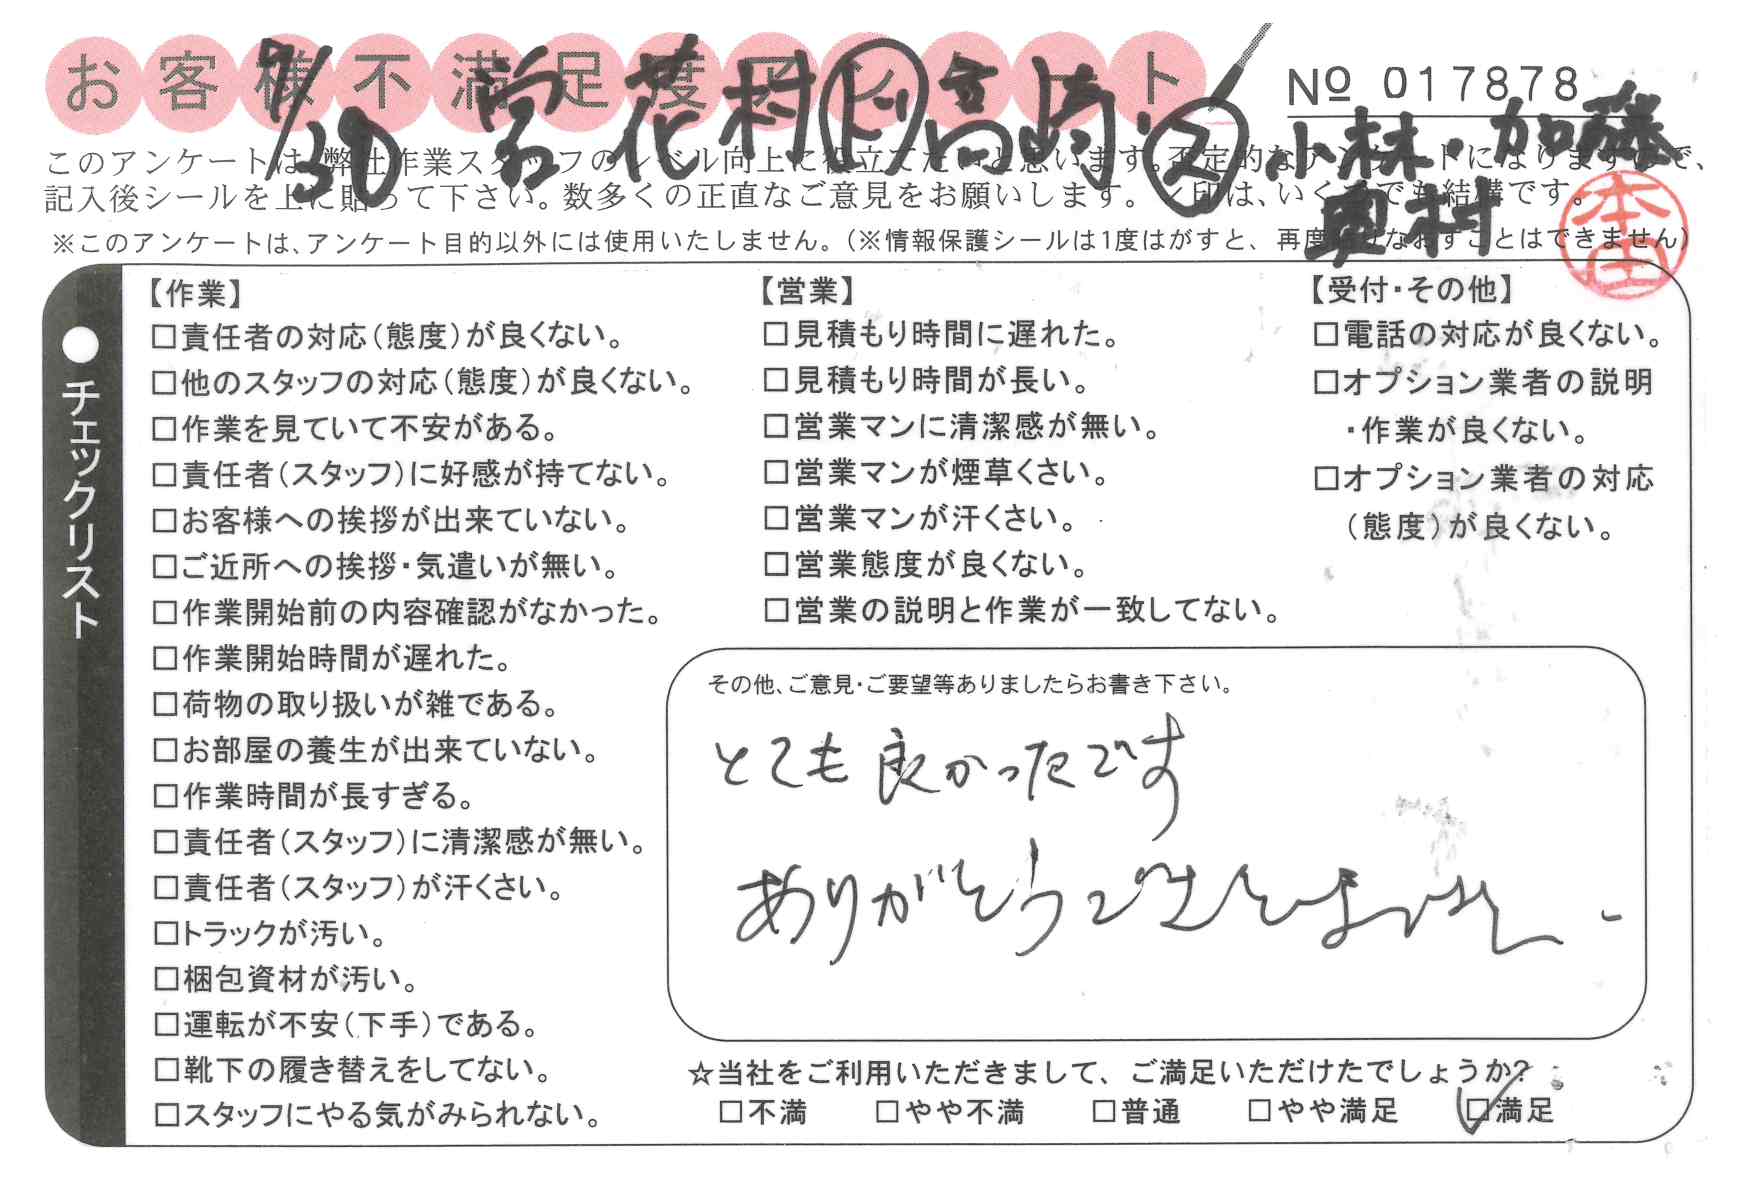 お客様不満足度アンケート
7/30 営 花村 ド 高崎・ス 小林・加藤
奥村
№ 017878
このアンケートは、弊社作業スタッフのレベル向上に役立てたいと思います。否定的なアンケートになりますので、
記入後シールを上に貼って下さい。数多くの正直なご意見をお願いします。✓印は、いくつでも結構です。
※このアンケートは、アンケート目的以外には使用いたしません。（※情報保護シールは1度はがすと、再度貼りなおすことはできません）
チェックリスト
【作業】
□責任者の対応（態度）が良くない。
□他のスタッフの対応（態度）が良くない。
□作業を見ていて不安がある。
□責任者（スタッフ）に好感が持てない。
□お客様への挨拶が出来ていない。
□ご近所への挨拶・気遣いが無い。
□作業開始前の内容確認がなかった。
□作業開始時間が遅れた。
□荷物の取り扱いが雑である。
□お部屋の養生が出来ていない。
□作業時間が長すぎる。
□責任者（スタッフ）に清潔感が無い。
□責任者（スタッフ）が汗くさい。
□トラックが汚い。
□梱包資材が汚い。
□運転が不安（下手）である。
□靴下の履き替えをしてない。
□スタッフにやる気がみられない。
【営業】
□見積もり時間に遅れた。
□見積もり時間が長い。
□営業マンに清潔感が無い。
□営業マンが煙草くさい。
□営業マンが汗くさい。
□営業態度が良くない。
□営業の説明と作業が一致してない。
【受付・その他】
□電話の対応が良くない。
□オプション業者の説明
・作業が良くない。
□オプション業者の対応
（態度）が良くない。
その他、ご意見・ご要望等ありましたらお書き下さい。
とても良かったです
ありがとうございました
☆当社をご利用いただきまして、ご満足いただけたでしょうか?
□不満 □やや不満 □普通 □やや満足 ☑満足